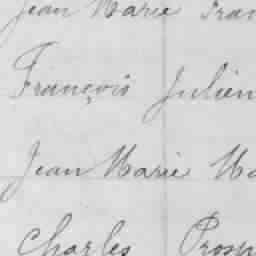 Jean Marie Fran
François Julien
Jean Marie Ma
Charles Prosp